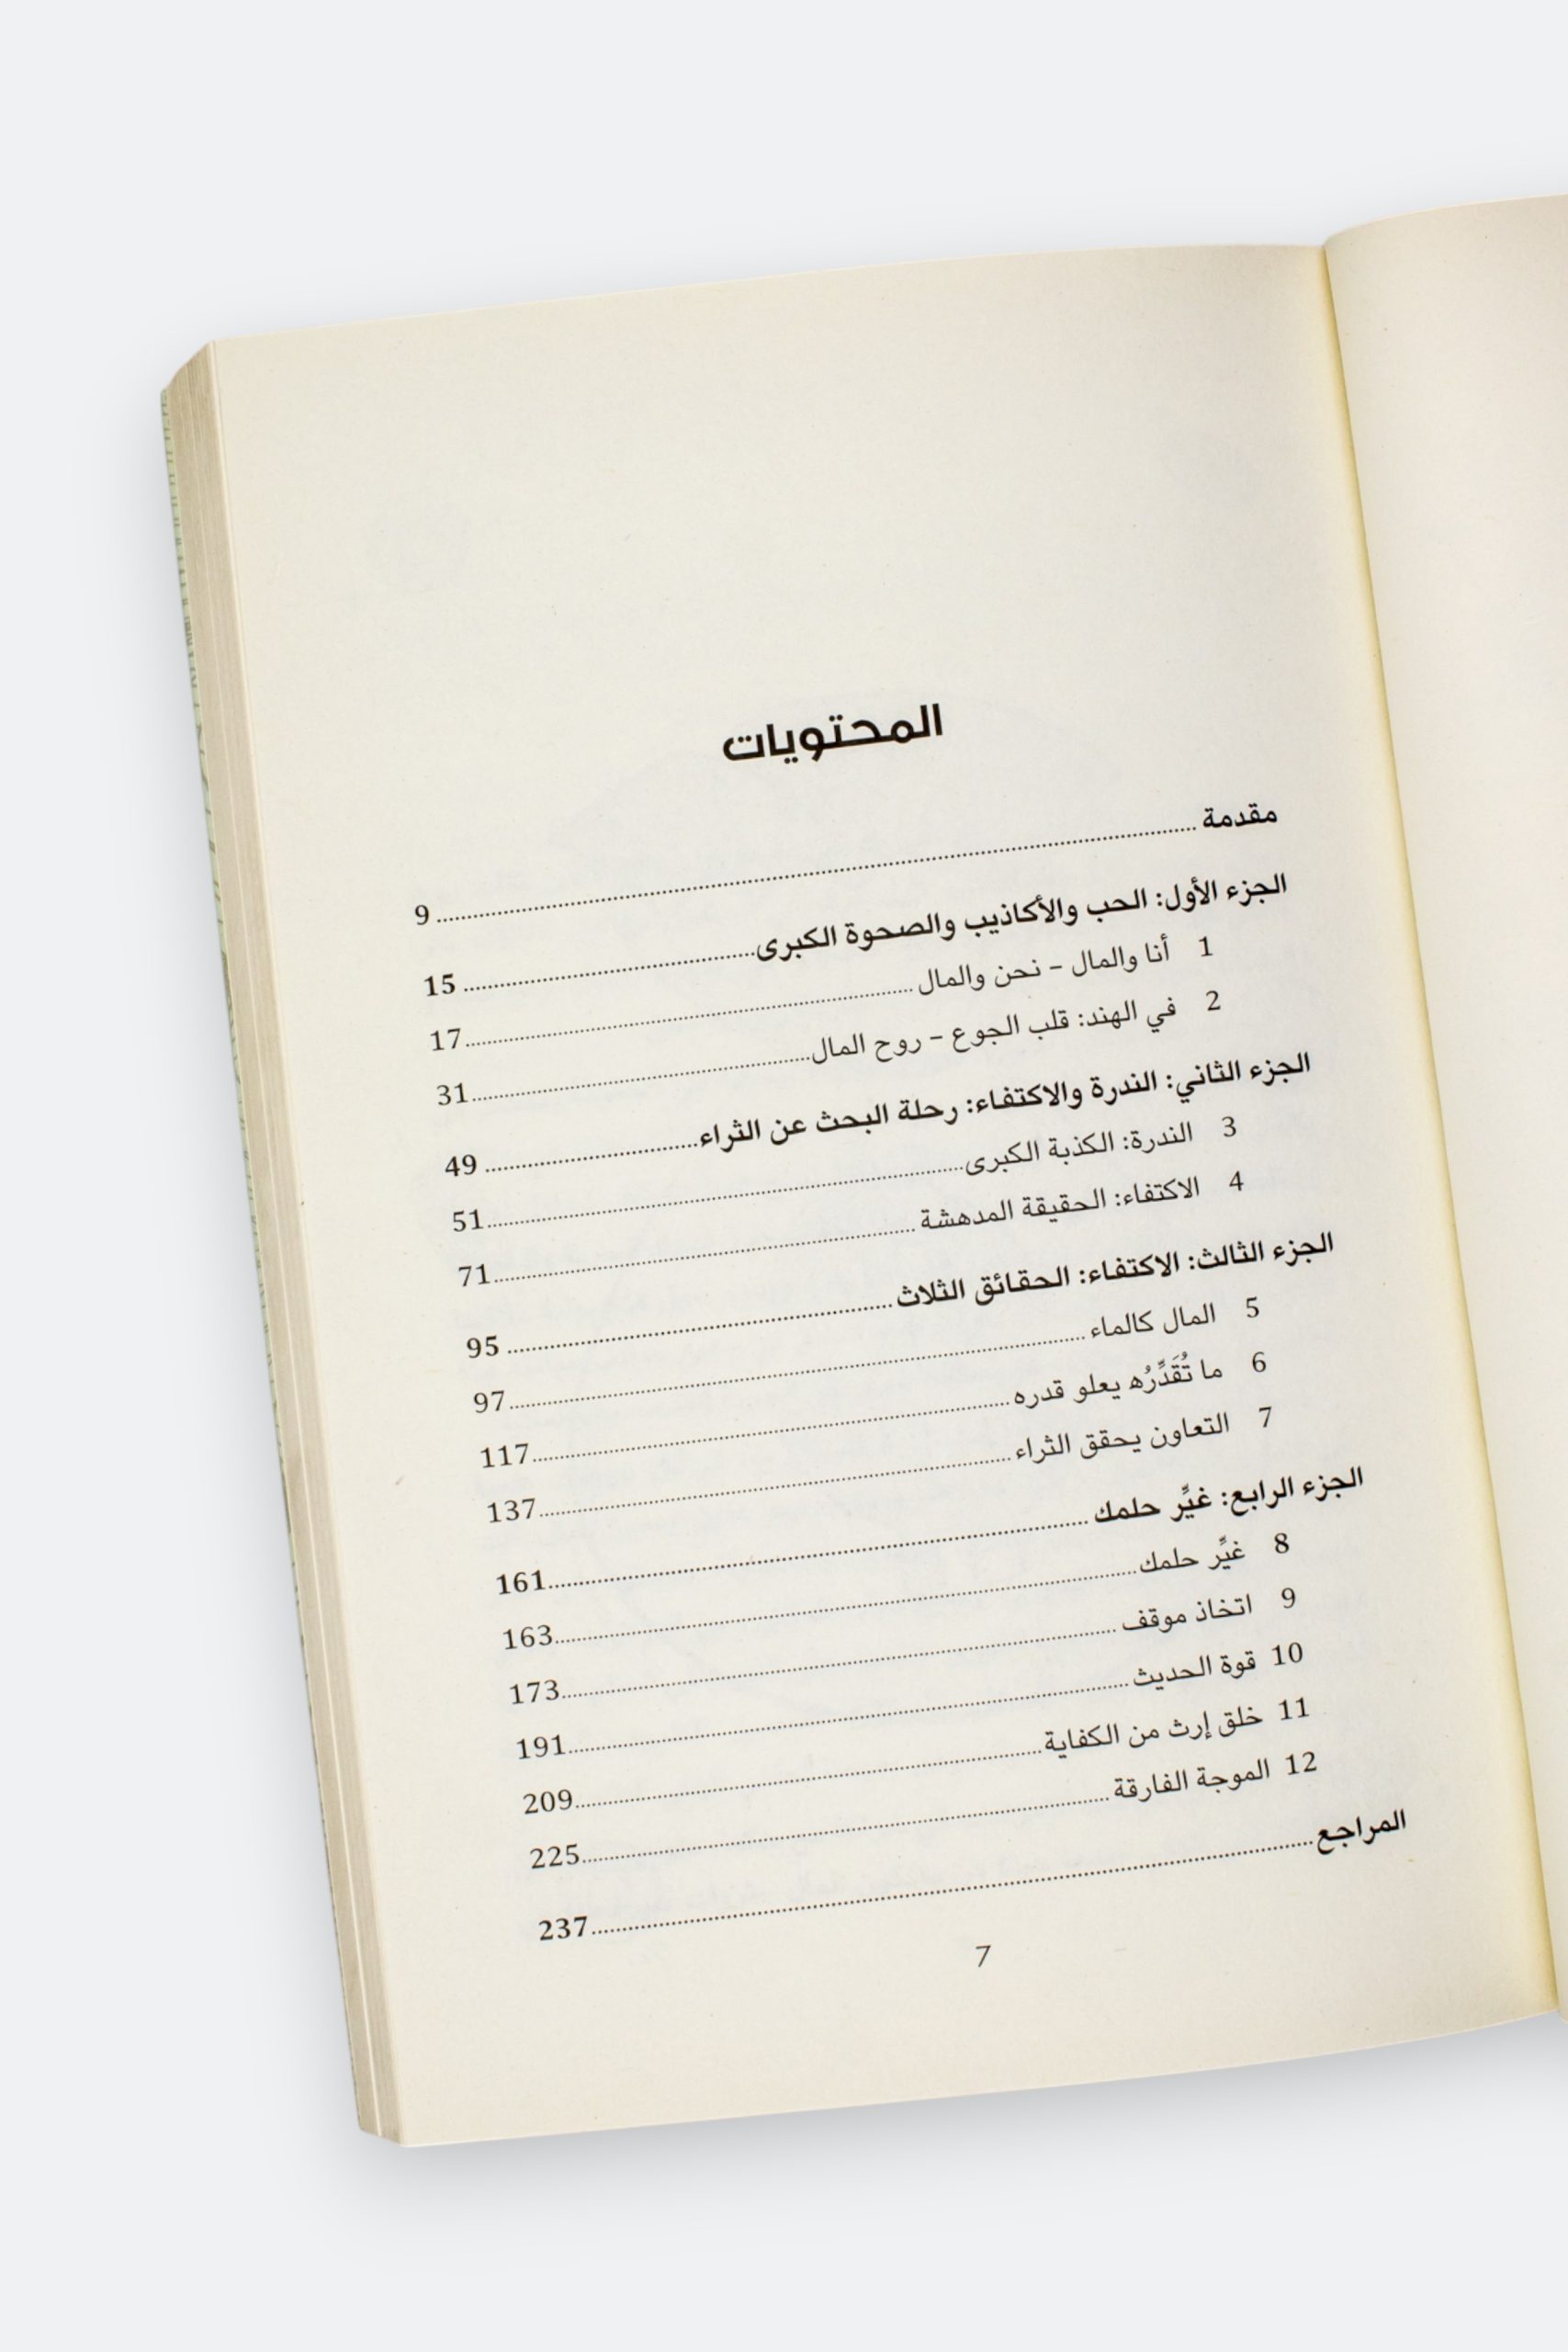 المحتويات
مقدمة ........ 9
الجزء الأول: الحب والأكاذيب والصحوة الكبرى ........ 15
1 أنا والمال – نحن والمال ........ 17
2 في الهند: قلب الجوع – روح المال ........ 31
الجزء الثاني: الندرة والاكتفاء: رحلة البحث عن الثراء ........ 49
3 الندرة: الكذبة الكبرى ........ 51
4 الاكتفاء: الحقيقة المدهشة ........ 71
الجزء الثالث: الاكتفاء: الحقائق الثلاث ........ 95
5 المال كالماء ........ 97
6 ما تُقَدِّرُه يعلو قدره ........ 117
7 التعاون يحقق الثراء ........ 137
الجزء الرابع: غيِّر حلمك ........ 161
8 غيِّر حلمك ........ 163
9 اتخاذ موقف ........ 173
10 قوة الحديث ........ 191
11 خلق إرث من الكفاية ........ 209
12 الموجة الفارقة ........ 225
المراجع ........ 237
7